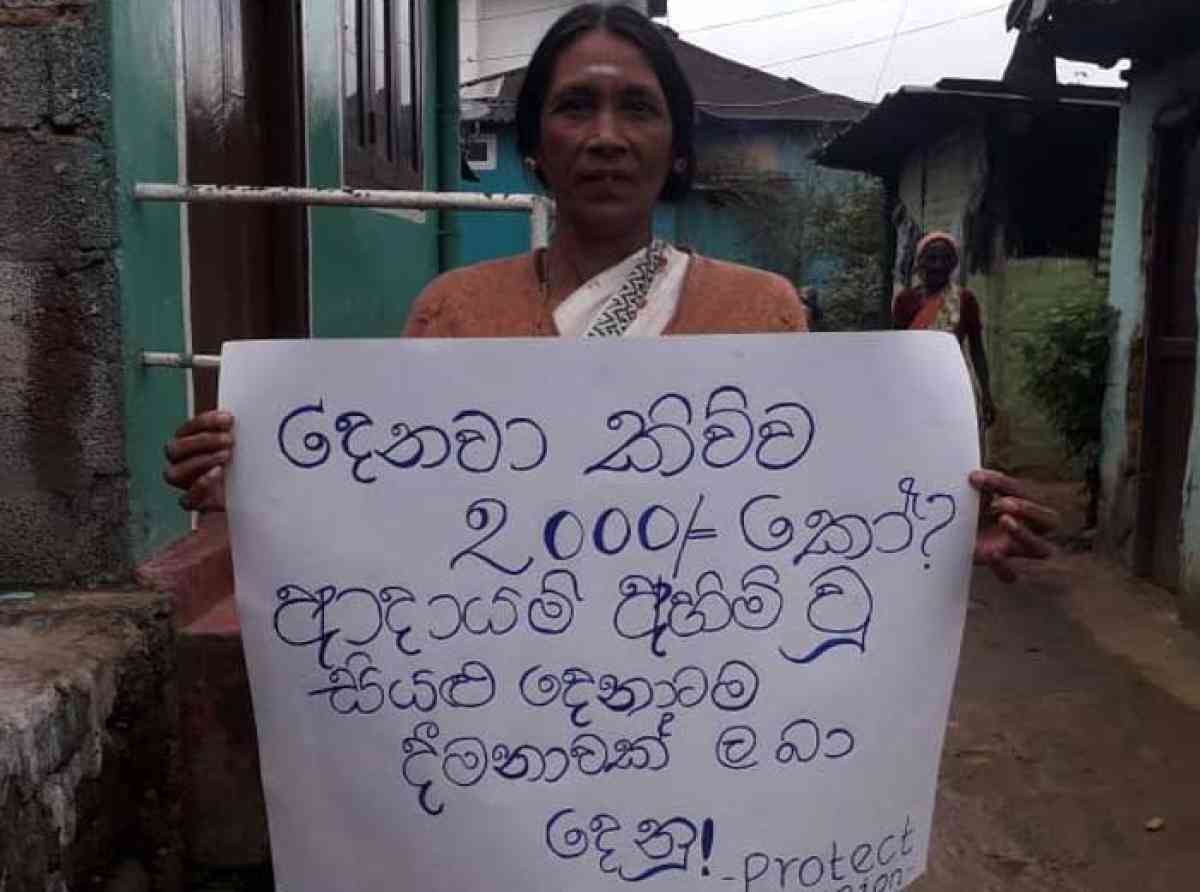 දෙනවා කිව්ව
2000/= කෝ?
ආදායම් අහිමි වූ
සියළු දෙනාටම
දීමනාවක් ලබා
දෙනු!
-protect
union-